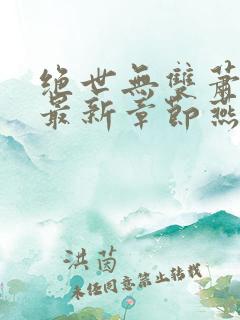 絕世無雙蕭
最新章節燕
洪茵
未经同意禁止转载